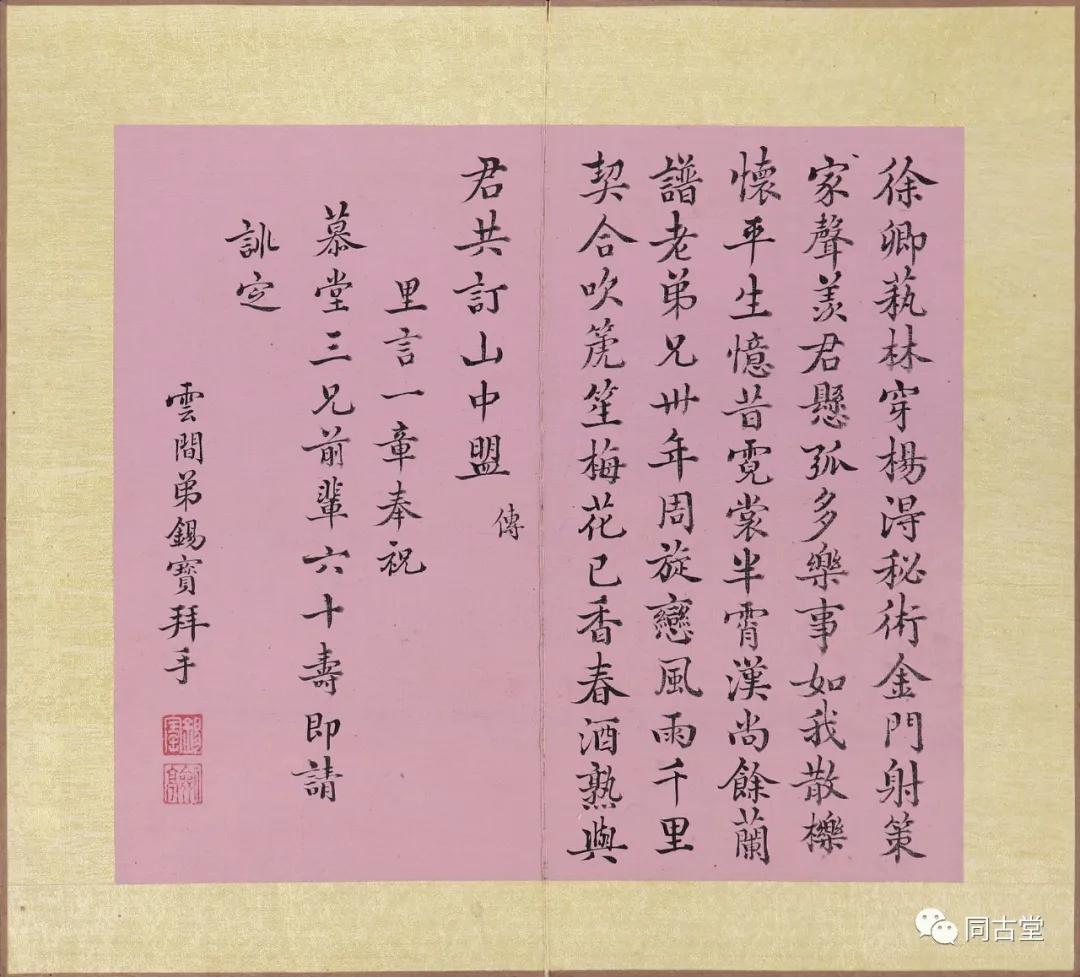 徐卿蓺林穿楊得秘術金門射策
家聲羡君懸弧多樂事如我散櫟
懷平生憶昔霓裳半霄漢尚餘蘭
譜老弟兄卅年周旋戀風雨千里
契合吹篪笙梅花已香春酒熟與
君共訂山中盟
傳
里言一章奉祝
慕堂三兄前輩六十壽即請
訛定
雲間弟錫寶拜手
錫寶
同古堂